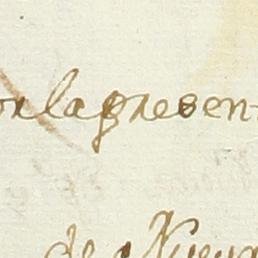 or la presen
de Nueva